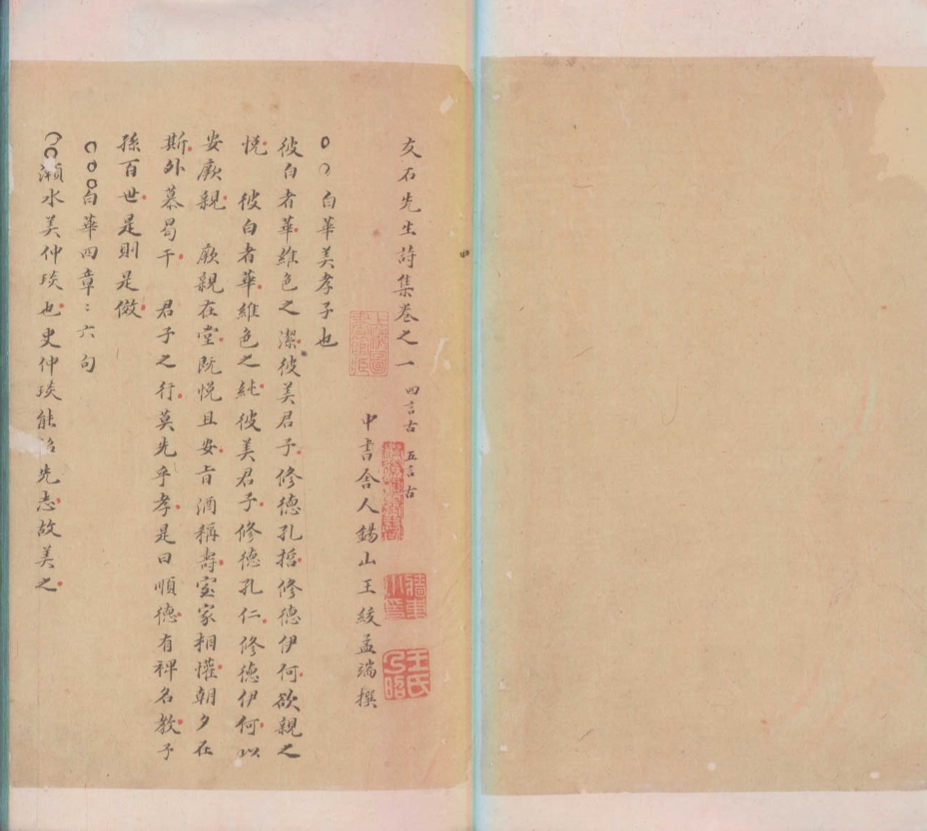 友石先生詩集卷之一 四言古 五言古
中書舍人錫山王紱孟端撰
白華美孝子也
彼白者華維色之潔彼美君子修德孔哲修德伊何欲親之
悅 彼白者華維色之純彼美君子修德孔仁修德伊何以
安厥親 厥親在堂既悅且安旨酒稱壽室家相懽朝夕在
斯外慕曷干 君子之行莫先乎孝是曰順德有裨名教子
孫百世是則是傚
白華四章〻六句
瀬水美仲琰也史仲琰能 先志故美之
王氏乃昭